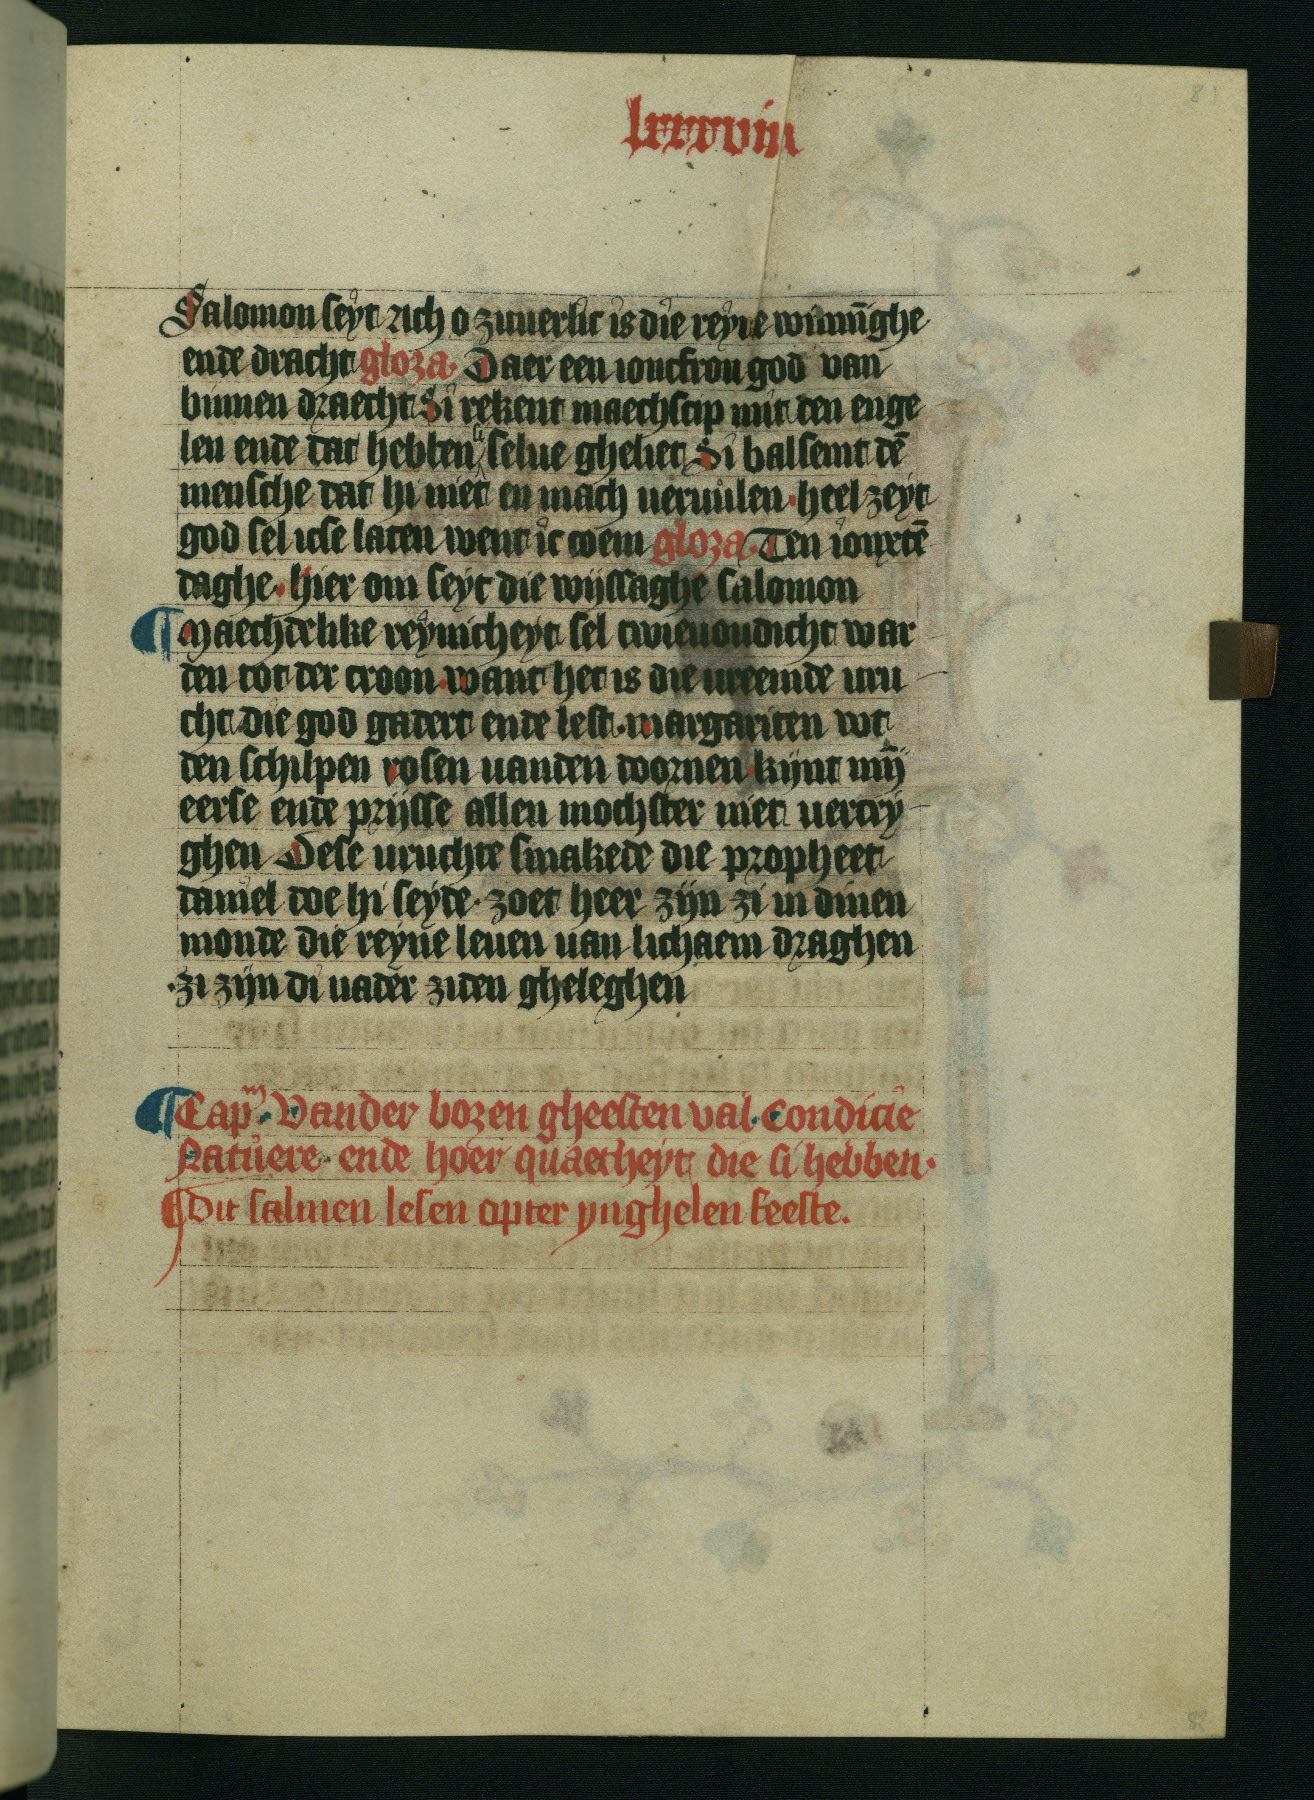 lxxxviii
Salomon seyt Ach o zuuerlic is die reyne winnīghe
ende dracht gloza. Daer een ioncfrou god van
binnen draecht Si rekent maechscip mit den enge
len ende dat hebben si selue gheliet Si balsemt dē
mensche dat hi niet en mach veruulen. heel zeyt
god sel icse laten went ic coem gloza. Ten ioncstē
daghe. hier om seyt die wijssaghe salomon
Maechdelike reynicheyt sel twieuoudicht war
den tot der croon. want het is die vreemde vru
cht die god gadert ende lest. margariten wt
den schilpen rosen vanden doornen kijnt mȳ
eerse ende prijsse allen mochster niet vercrij
ghen Dese vruchte smakede die propheet
daniel doe hi seyde. zoet heer zijn zi in dinen
monde die reyne leuen van lichaem draghen
zi zijn di nader ziden gheleghen
Capᵐ. Vander bozen gheesten val. Condicie
Natuere. ende hoer quaetheyt die si hebben.
Dit salmen lesen opter ynghelen feeste.
81
82